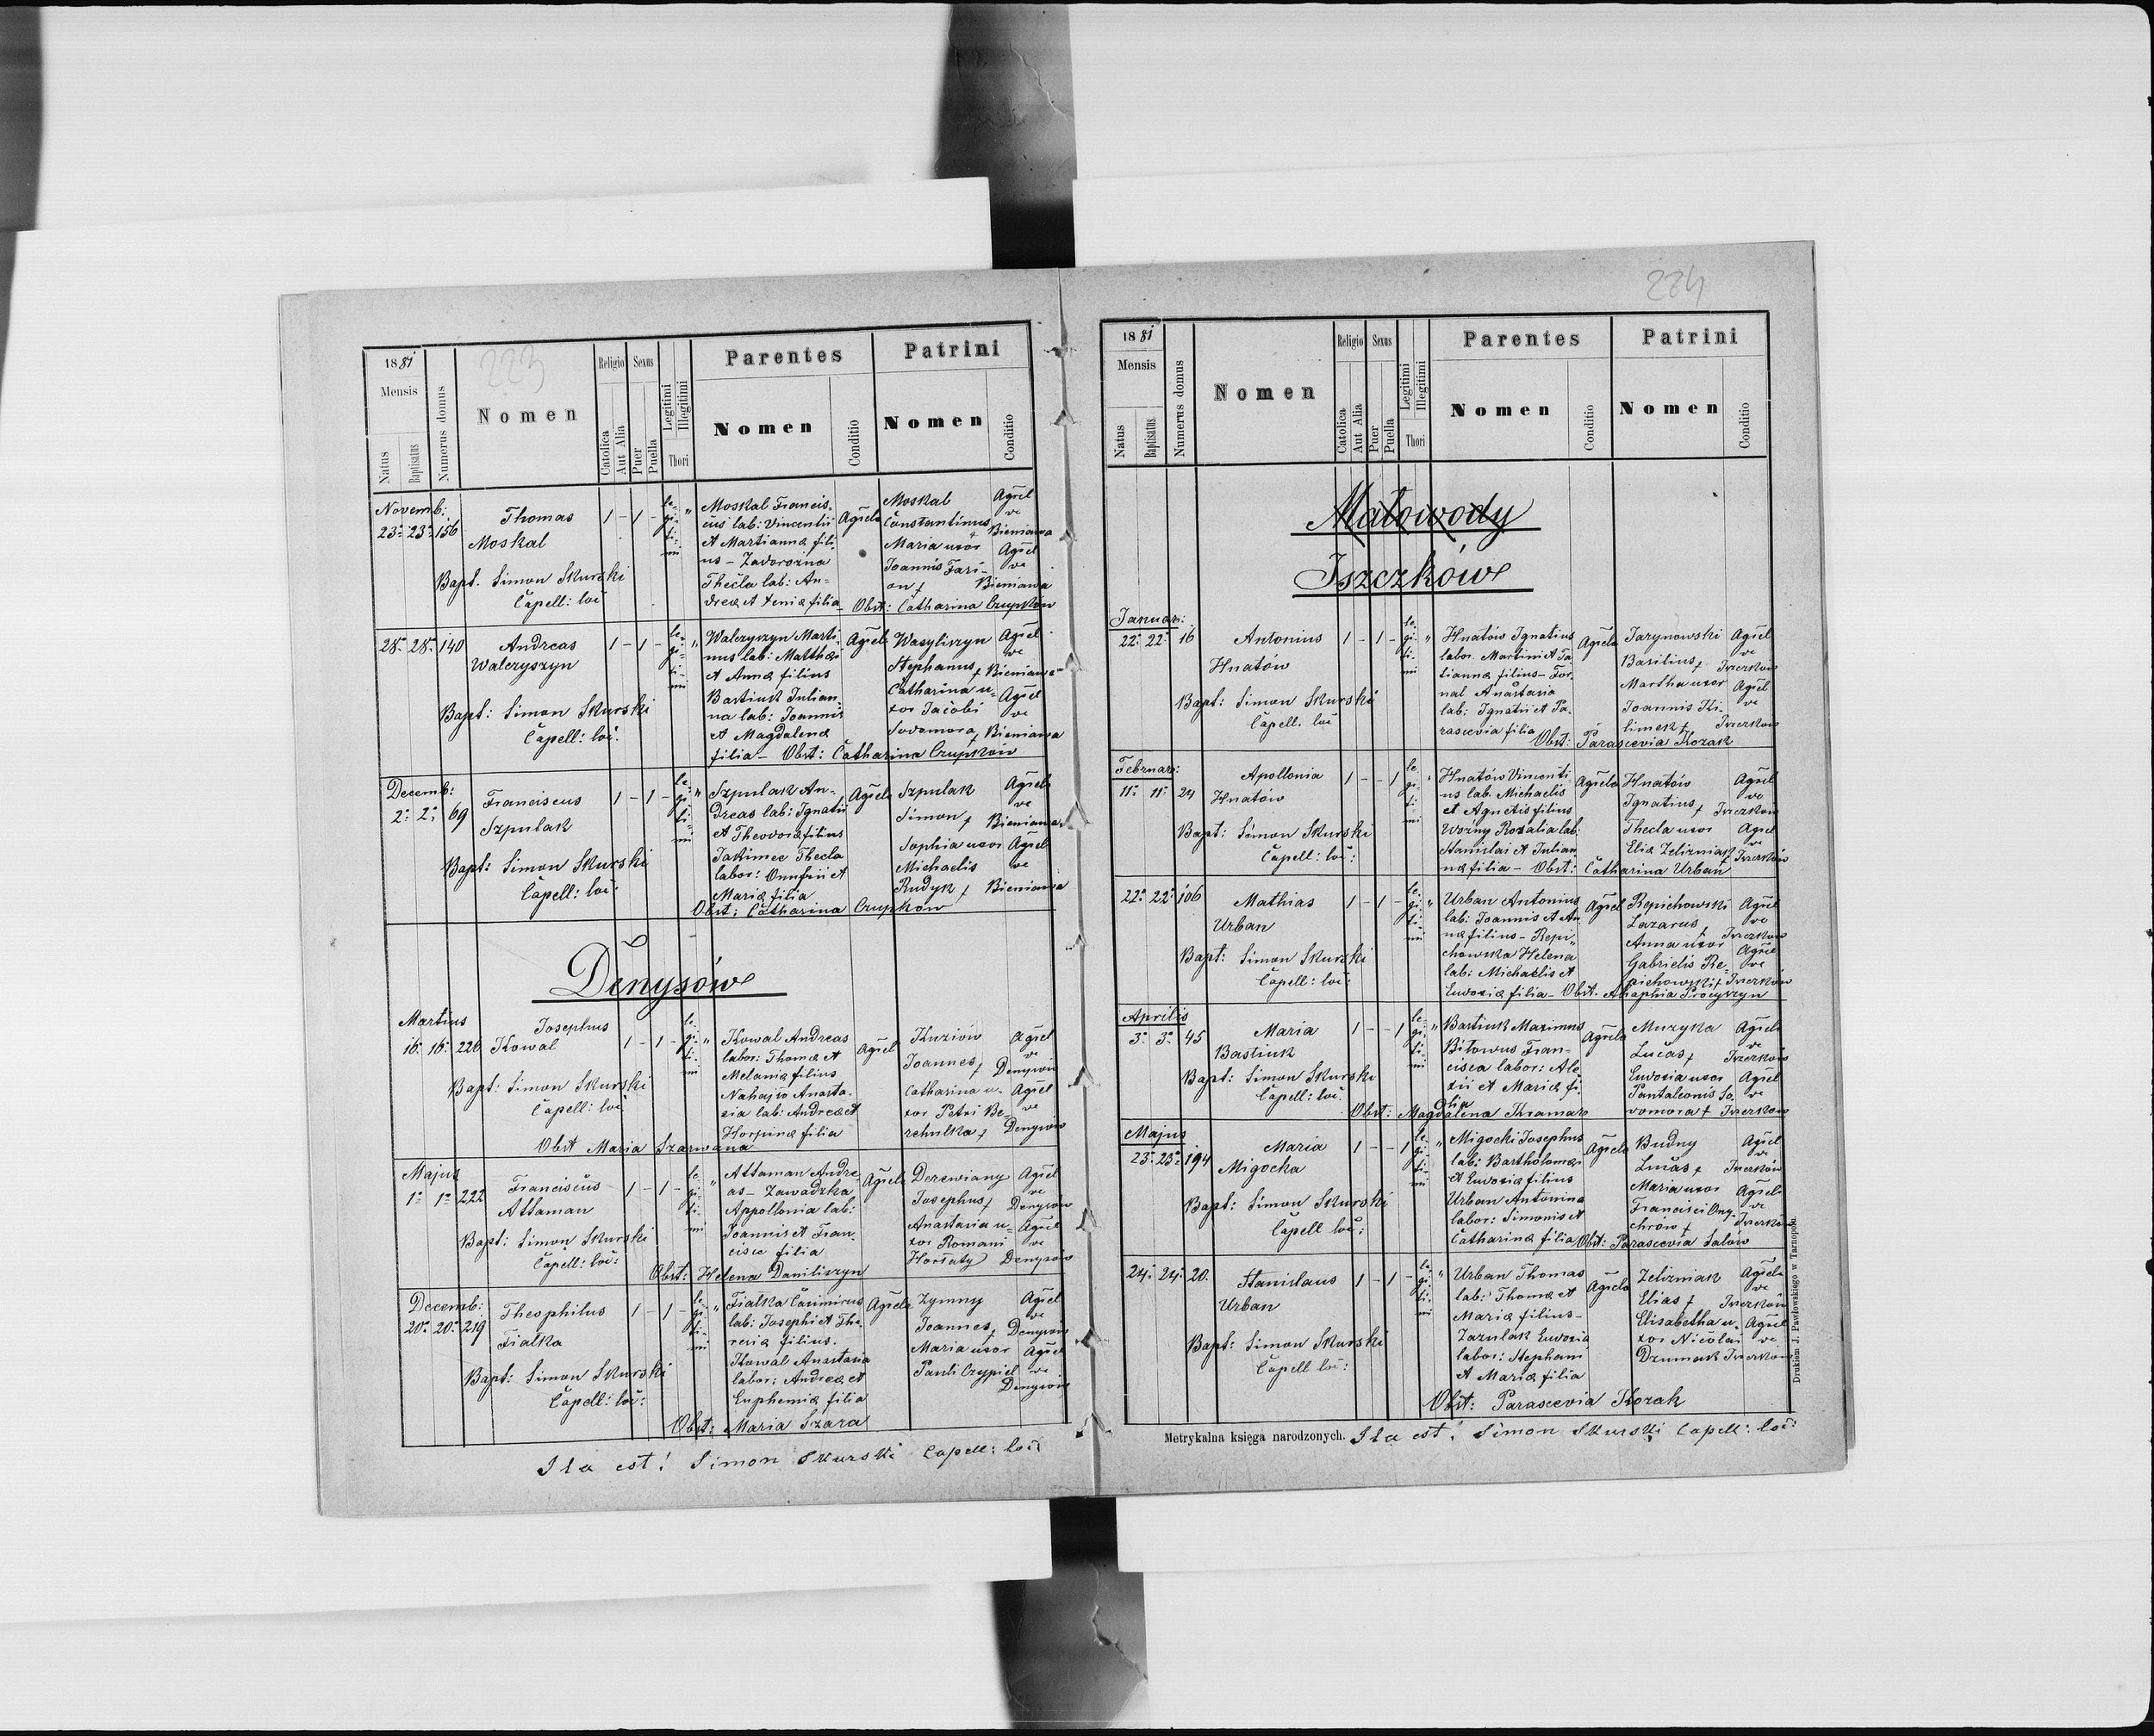 223
1881
Mensis
Natus
Baptisatus
Numerus domus
Nomen
Religio
Catolica
Aut Alia
Sexus
Puer
Puella
Legitimi
Illegitimi
Thori
Parentes
Nomen
Conditio
Patrini
Nomen
Conditio
Novemb:
23: 23: 156
Thomas
Moskal
Bapt. Simon Skurski
Capell: loci
1 - 1 -
le-
gi-
ti-
mi
"
Moskal Francis-
cus lab: Vincentii
et Martianna fili-
us - Zavorozna
Thecla lab: An-
dreæ et Xeniæ filia
Agricolæ
Moskal
Constantinus
Maria uxor
Joannis Fari-
on +
Agricl
ve
Bieniawa
Agricl
ve
Bieniawa
Obst: Catharina Czupkow
28: 28: 140
Andreas
Walczyszyn
Bapt: Simon Skurski
Capell: loci
1 - 1 -
le-
gi-
ti-
mi
"
Walczyszyn Marti-
nus lab: Matthæi
et Annæ filius
Bartiuk Julian-
na lab: Joannis
et Magdalenæ
filia - Obst: Catharina Czupków
Agricl
Wasyliszyn
Stephanus +
Catharina u-
xor Jacobi
Sodomora +
Agricl
ve
Bieniawa
Agricl
ve
Bieniawa
Decemb:
2: 2: 69
Franciscus
Szpulak
Bapt: Simon Skurski
Capell: loci:
1 - 1 -
le-
gi-
ti-
mi
"
Szpulak An-
dreas lab: Ignatii
et Theodoræ filius
Jakimec Thecla
labor: Onufrii et
Mariæ filia
Agricolæ
Szpulak
Simon +
Sophia uxor
Michaelis
Rudyk +
Agricl
ve
Bieniawa
Agricl
ve
Bieniawa
Obst: Catharina Czupkow
Denysów
Martius
16: 16: 226
Josephus
Kowal
Bapt: Simon Skurski
Capell: loci
1 - 1 -
le-
gi-
ti-
mi
"
Kowal Andreas
labor: Thomæ et
Melaniæ filius
Nahajło Anasta-
sia lab: Andreæ et
Horpinæ filia
Agricl
Kuziów
Joannes +
Catharina u-
xor Petri Be-
rehulka +
Agricl
ve
Denysów
Agricl
ve
Denysów
Obst Maria Szarwana
Majus
1: 1: 222
Franciscus
Attaman
Bapt: Simon Skurski
Capell: loci:
1 - 1 -
le-
gi-
ti-
mi
"
Attaman Andre-
as - Zawadzka
Appollonia lab:
Joannis et Fran-
cisce filia
Agricolæ
Derewiany
Josephus +
Anastasia u-
xor Romani
Agricl
ve
Denysów
Agricl
ve
Denysów
Obst: Helena Daniliszyn
Decemb:
20: 20: 219
Theophilus
Fialka
Bapt: Simon Skurski
Capell: loci:
1 - 1 -
le-
gi-
ti-
mi
"
Fialka Casimirus
lab: Josephi et The-
resiæ filius.
Kowal Anastasia
labor: Andreæ et
Euphemiæ filia
Agricolæ
Zymny
Joannes +
Maria uxor
Pauli Czypiel
Agricl
ve
Denysów
Agricl
ve
Denysów
Obst: Maria Szara
Ita est! Simon Skurski Capell: loci
224
1881
Mensis
Natus
Baptisatus
Numerus domus
Nomen
Religio
Catolica
Aut Alia
Sexus
Puer
Puella
Legitimi
Illegitimi
Thori
Parentes
Nomen
Conditio
Patrini
Nomen
Conditio
Małowody
Iszczków
Januar:
22: 22: 16
Antonius
Hnatów
Bapt: Simon Skurski
Capell: loci
1 - 1 -
le-
gi-
ti-
mi
"
Hnatów Ignatius
labor. Martini et Ta-
tianna filius - For-
nal Anastasia
lab: Ignatii et Pa-
rascevia filia
Agricolæ
Jarynowski
Basilius +
Martha uxor
Joannis Ki-
limek +
Agricl
ve
Iszczków
Agricl
ve
Iszczków
Obst: Parascevia Kozak
Februar:
11: 11: 24
Apollonia
Hnatów
Bapt: Simon Skurski
Capell: loci:
1 - - 1
le
gi-
ti-
mi
"
Hnatów Vincenti-
us lab. Michaelis
et Agnetis filius
Woźny Rozalia lab:
Stanislai et Julian-
næ filia - Obst: Catharina Urban
Agricolæ
Hnatów
Ignatius +
Thecla uxor
Eliæ Zelizniak +
Agricl
ve
Iszczków
Agricl
ve
Iszczków
22: 22: 106
Mathias
Urban
Bapt: Simon Skurski
Capell: loci:
1 - 1 -
le-
gi-
ti-
mi
"
Urban Antonius
lab: Joannis et An-
næ filius - Repi-
chowska Helena
lab: Michaelis et
Eudoxiæ filia - Obst. Ahaphia Procyszyn
Agricl
Repichowski
Lazarus +
Anna uxor
Gabrielis Re-
pichowski +
Agricl
ve
Iszczków
Agricl
ve
Iszczków
Aprilis
3: 3: 45
Maria
Bastiuk
Bapt: Simon Skurski
Capell: loci.
1 - - 1
le-
gi-
ti-
mi
"
Bastiuk Maximus
Bitowus Fran-
cisca labor: Ale-
xii et Mariæ fi-
lia
Agricolæ
Muzyka
Lucas +
Eudoxia uxor
Pantaleonis So-
domora +
Agricl
ve
Iszczków
Agricl
ve
Iszczków
Obst: Magdalena Kramar
Majus
23: 23: 194
Maria
Migocka
Bapt: Simon Skurski
Capell loci:
1 - - 1
le
gi-
ti-
mi
"
Migocki Josephus
lab: Bartholomæi
et Eudoxiæ filius
Urban Antonina
labor: Simonis et
Catharinæ filia
Agricolæ
Budny
Lucas +
Maria uxor
Francisci Ony-
chrow +
Agricl
ve
Iszczków
Agricl
ve
Iszczków
Obst: Parascevia Salow
24: 24: 20.
Stanislaus
Urban
Bapt: Simon Skurski
Capell loci:
1 - 1 -
le-
gi-
ti-
mi
"
Urban Thomas
lab: Thomæ et
Mariæ filius -
Zazulak Eudoxia
labor: Stephani
et Mariæ filia
Agricolæ
Zelizniak
Elias +
Elisabetha u-
xor Nicolai
Dzumak
Agricl
ve
Iszczków
Agricl
ve
Iszczków
Obst: Parascevia Kozak
Metrykalna księga narodzonych.
Ita est! Simon Skurski Capell: loci
Drukiem J. Pawłowskiego w Tarnopolu.